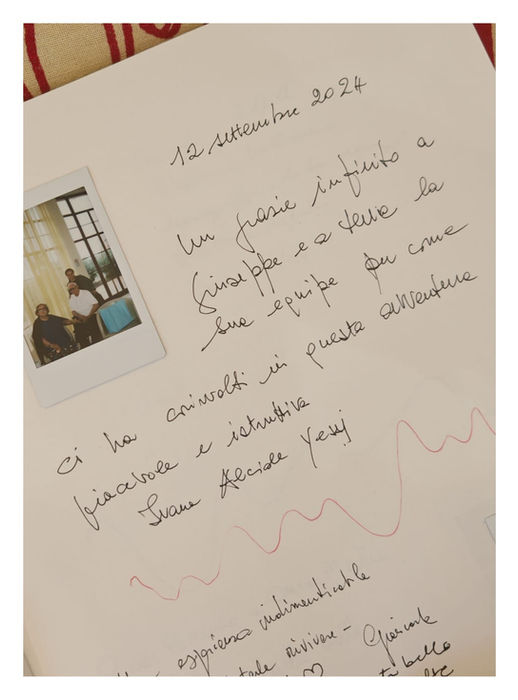 12 settembre 2024
Un grazie infinito a
Giuseppe e a tutta la
sua equipe per come
ci ha coinvolti in questa avventura
piacevole e istruttiva
Ivana Alcide Yessj
esperienza indimenticabile
rivivere -
bello